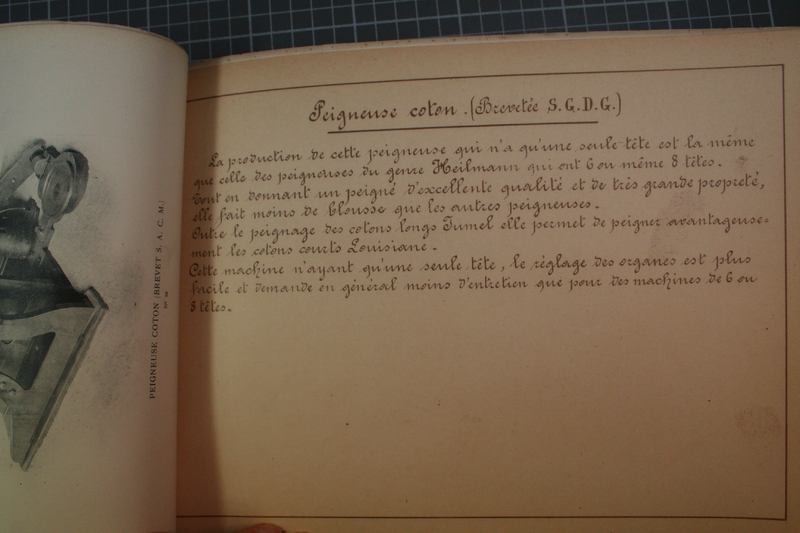 PEIGNEUSE COTON (BREVET S. A. C. M.)
Peigneuse coton. (Brevetée S.G.D.G.)
La production de cette peigneuse qui n'a qu'une seule tête est la même
que celle des peigneuses du genre Heilmann qui ont 6 ou même 8 têtes.
Tout en donnant un peigné d'excellente qualité et de très grande propreté,
elle fait moins de blousse que les autres peigneuses.
Outre le peignage des cotons longs Jumel elle permet de peigner avantageuse=
ment les cotons courts Louisiane.
Cette machine n'ayant qu'une seule tête, le réglage des organes est plus
facile et demande en général moins d'entretien que pour des machines de 6 ou
8 têtes.